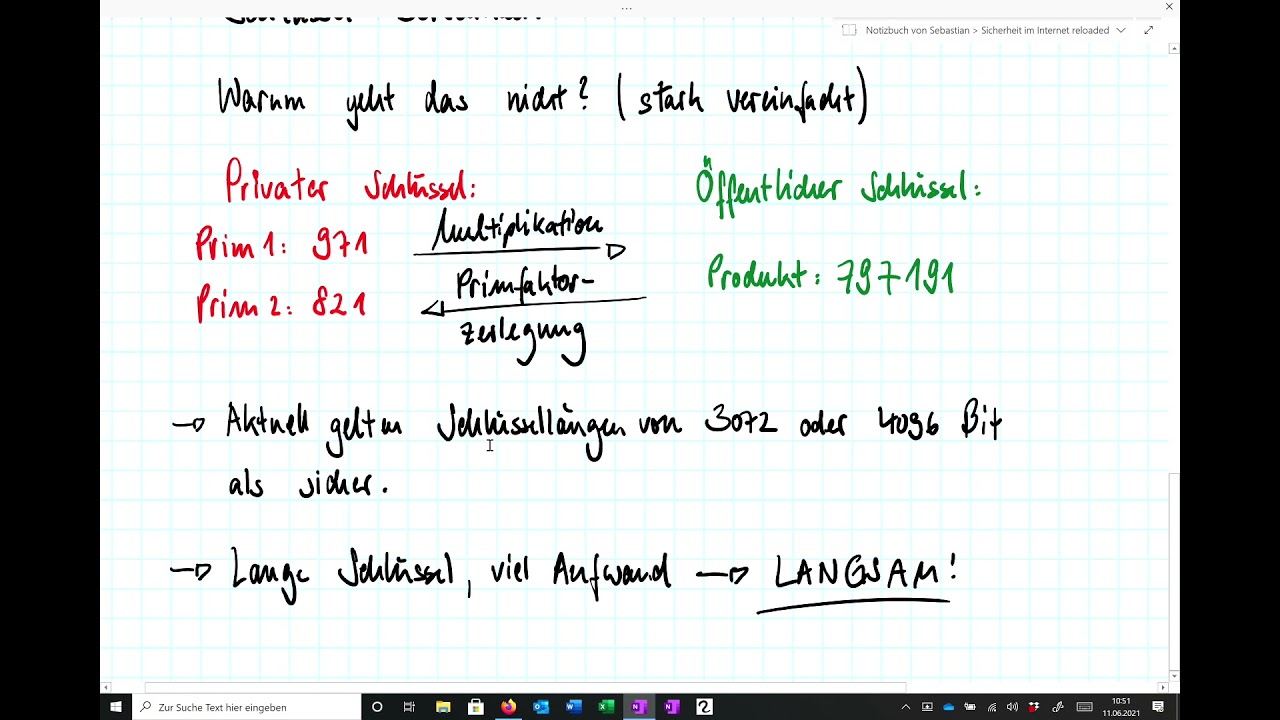 Notizbuch von Sebastian > Sicherheit im Internet reloaded
Warum geht das nicht? (stark vereinfacht)
Privater Schlüssel:
Öffentlicher Schlüssel:
Multiplikation
Prim 1: 971
Primfaktor-
Produkt: 797191
Prim 2: 821
zerlegung
→ Aktuell gelten Schlüssellängen von 3072 oder 4096 Bit
als sicher.
→ Lange Schlüssel, viel Aufwand → LANGSAM!
Zur Suche Text hier eingeben
10:51
11.06.2021